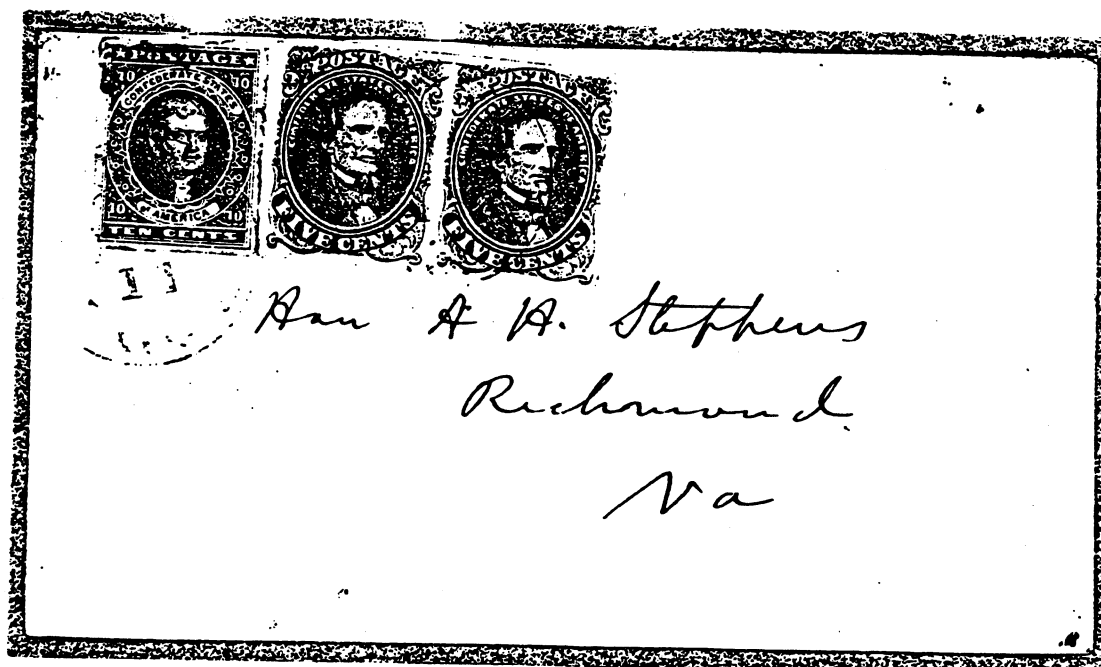 POSTAGE
10 10
CONFEDERATE STATES
OF AMERICA
10 10
TEN CENTS
POSTAGE
CONFEDERATE STATES OF AMERICA
FIVE CENTS
POSTAGE
CONFEDERATE STATES OF AMERICA
FIVE CENTS
Hon A H. Stephens
Richmond
Va